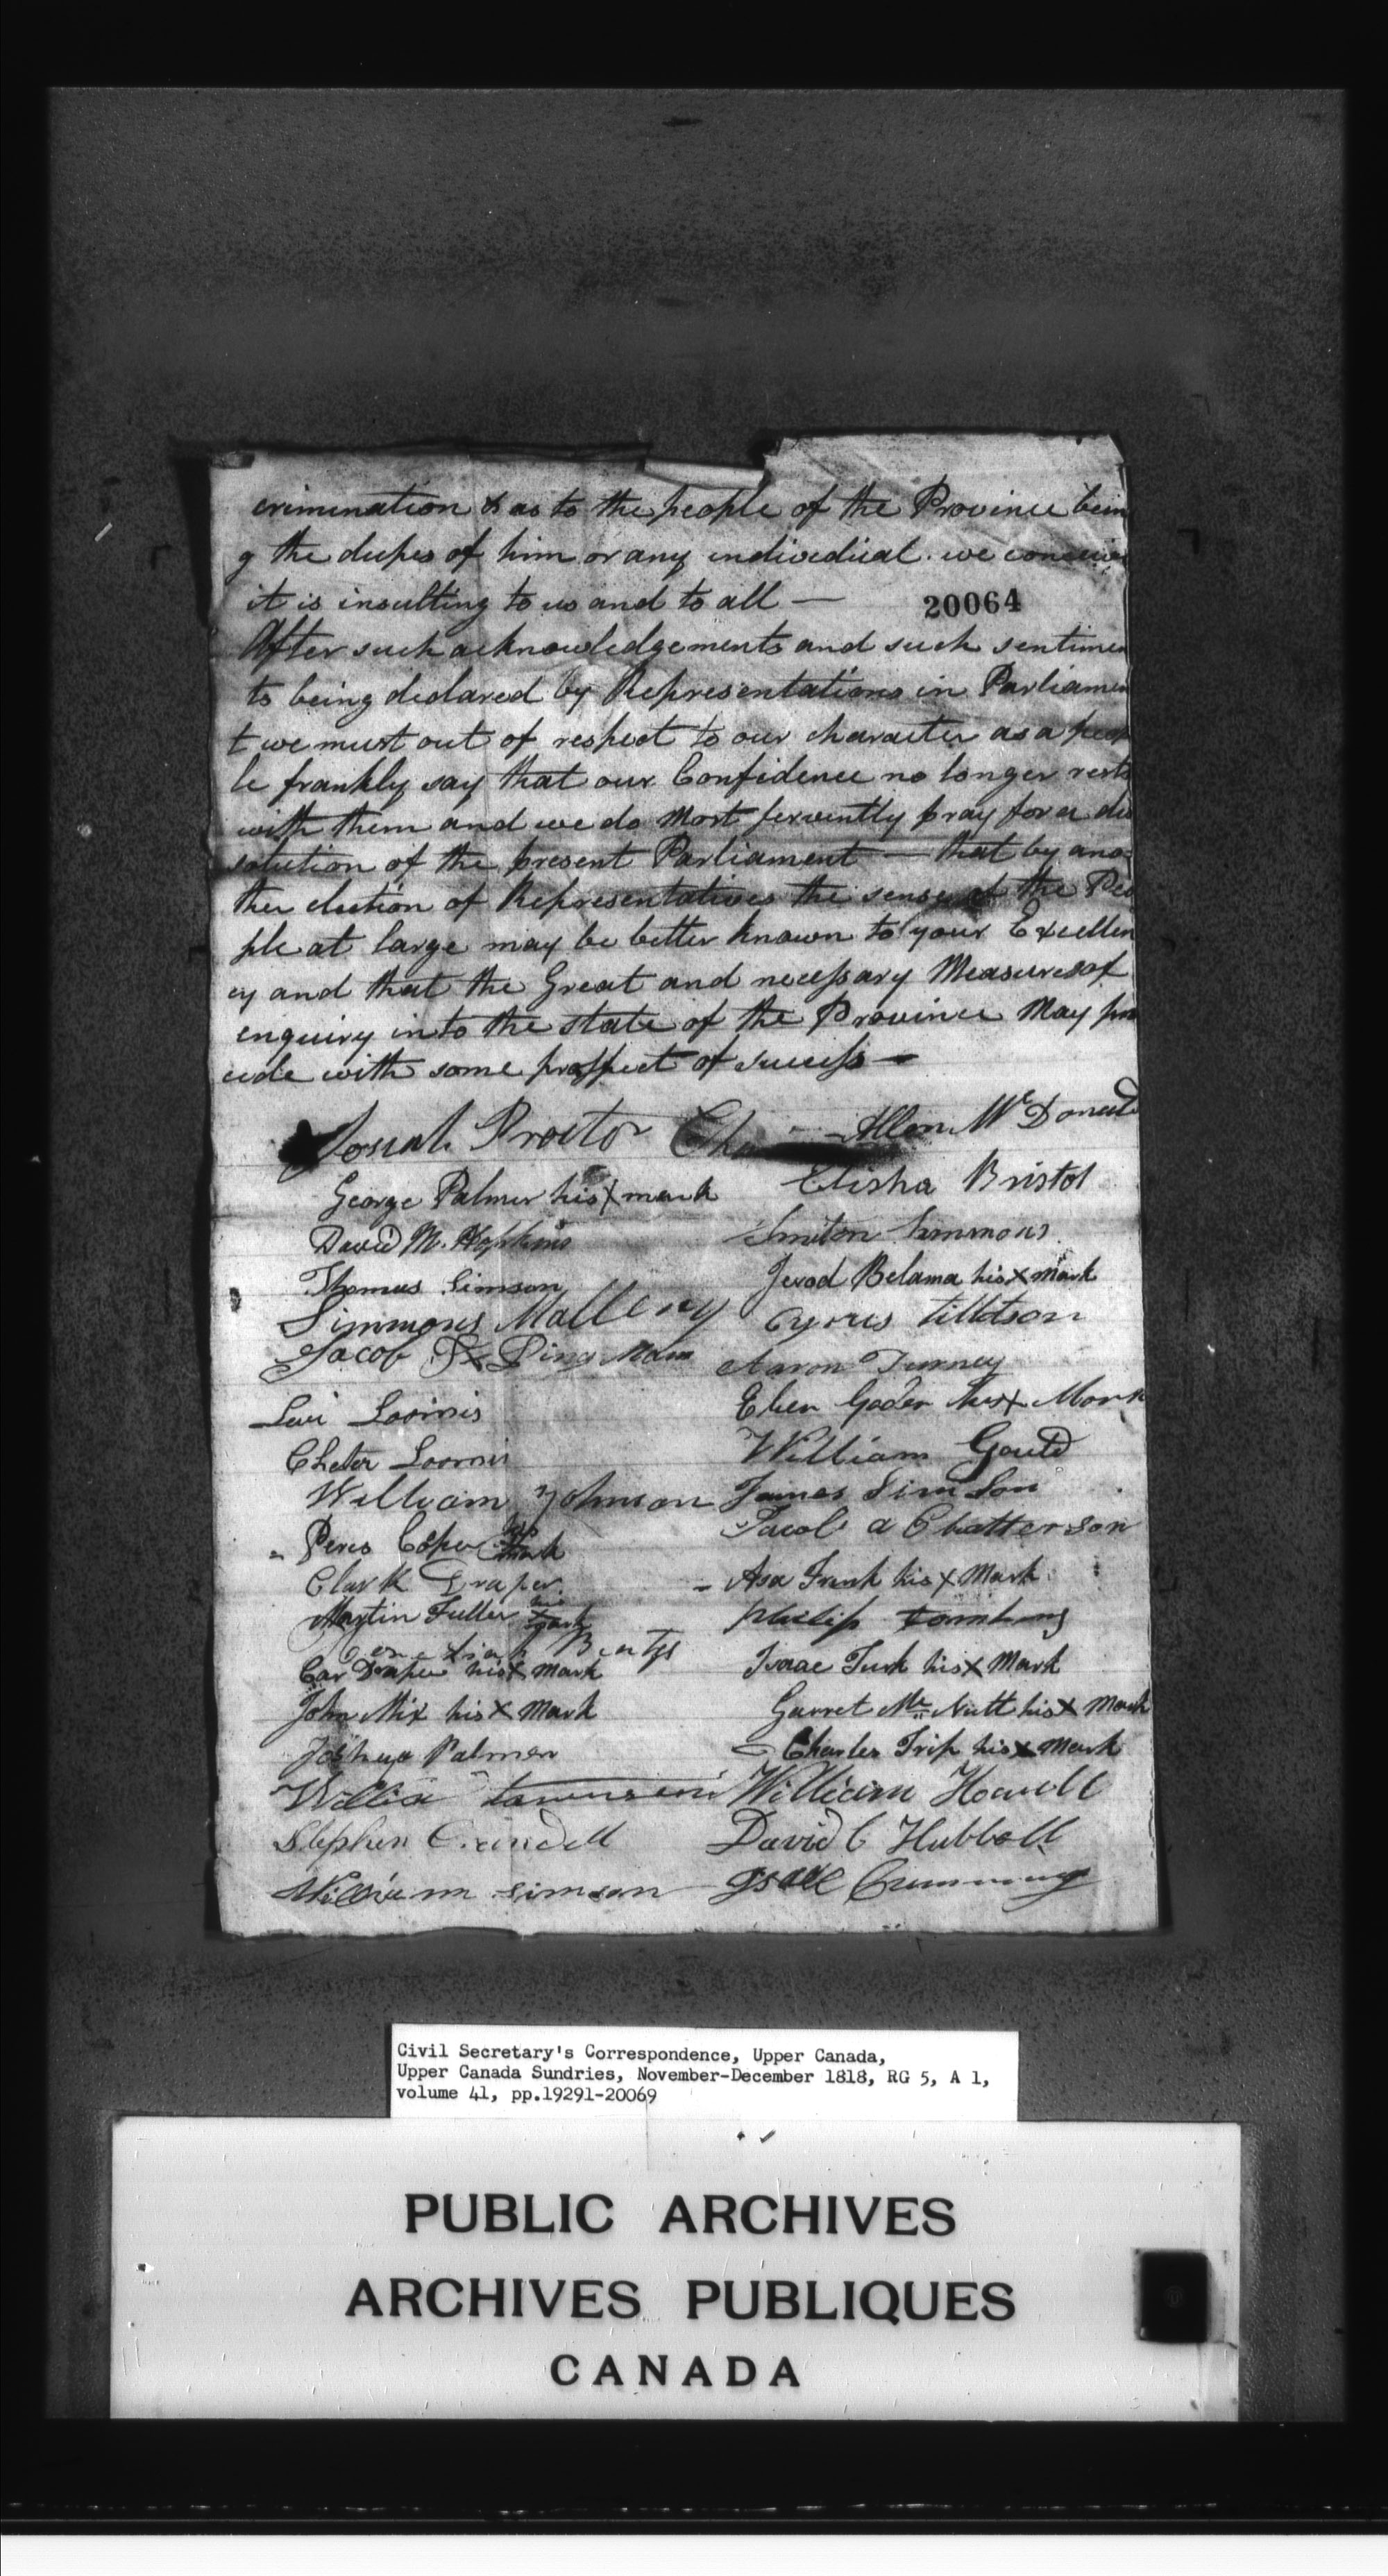 crimination & as to the people of the Province bein
g the dupes of him or any individual. we conceive
it is insulting to us and to all —
20064
After such acknowledgements and such sentimen
ts being declared by Representations in Parliamen
t we must out of respect to our character as a peop
le frankly say that our Confidence no longer rests
with them and we do Most fervently pray for a dis
solution of the present Parliament — that by ano-
ther election of Representatives the sense of the Peo
ple at large may be better known to your Excellen
cy and that the Great and necessary Measures of
enquiry into the state of the Province May pro
ceede with some prospect of success —
Josiah Proctor
Allen McDonald
George Palmer his X mark
Elisha Bristol
David M. Hopkins
Simmons
Thomas Simson
Jerod Belama his X mark
Simmons Mallery
Cyrus Tilletson
Jacob X Dingman
Aaron Turney
Levi Loomis
Eben his X Mark
Cheter Loomis
William Gould
William Johnson
James Simson
Peres his mark
Jacob a Chatterson
Clark Draper
Asa his X Mark
Martin Fuller his X mark
Philip
Draper his X mark
Isaac Turk his X Mark
John Mix his X Mark
Garret Mc Nutt his X Mark
Joshua Palmer
Charles Trip his X Mark
William Howell
Stephen Crandell
David C Hubbell
William Simson
Cumming
Civil Secretary's Correspondence, Upper Canada,
Upper Canada Sundries, November-December 1818, RG 5, A 1,
volume 41, pp.19291-20069
PUBLIC ARCHIVES
ARCHIVES PUBLIQUES
CANADA